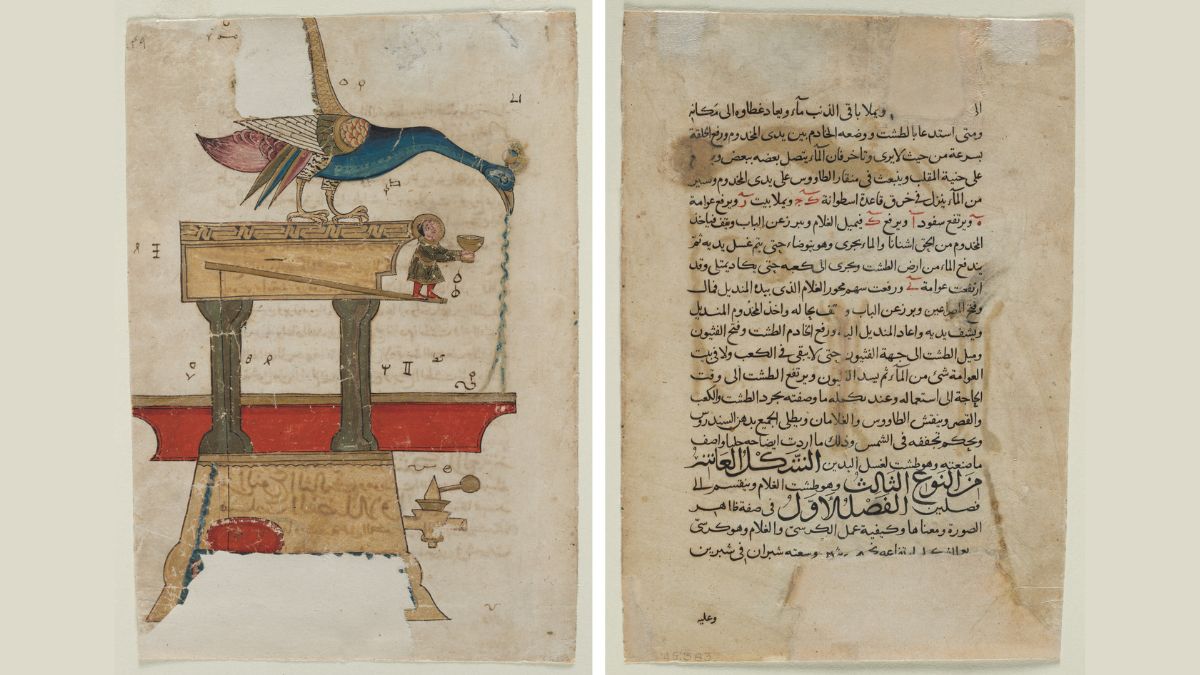 ويملا باقى الذنب ماء ويعاد غطاوه الى مكانه
ومتى استدعا بالطشت وضعه الخادم بين يدى المخدوم ورفع الحلقة
بسرعة من حيث لا يرى وتاخر فان الماء يتصل بعضه ببعض
على حنية المقلب وينبعث فى منقار الطاووس على يدى المخدوم ويسير
من الماء ينزل فى خرق قاعدة اسطوانة ويملا بيت ويرفع عوامة
ويرتفع سفود ويرفع فيميل الغلام ويبرز عن الباب ويقف فياخذ
المخدوم من الحق اشنانا والماء يجرى وهو يتوضاء حتى يتم غسل يديه ثم
يندفع الماء من ارض الطشت ويجرى الى كعبه حتى يكاد يمتلى وقد
ارتفعت عوامة ورفعت سهم محور الغلام الذى بيده المنديل فمال
وفتح المصراعين وبرز عن الباب وقف بحاله واخذ المخدوم المنديل
وينشف يديه واعاد المنديل اليه ورفع الخادم الطشت وفتح الفثيون
وميل الطشت الى جهة الفثيون حتى لا يبقى فى الكعب ولا فى بيت
العوامة شئ من الماء ثم يسد الفثيون ويرتفع الطشت الى وقت
الحاجة الى استعماله وعند تكمله ما وصفته يجرد الطشت والكعب
والقصر وينقش الطاووس والغلامان ويطلى الجميع بدهن السندروس
ويحكم تجفيفه فى الشمس وذلك ما اردت ايضاحه جليا واصف
ما صنعته وهو طشت لغسل اليدين الشكل العاشر
من النوع الثالث وهو طشت الغلام وينقسم الى
فصلين الفصل الاول فى صفة ظاهر
الصورة ومعناها وكيفية عمل الكرسى والغلام وهو كرسى
وسعته شبران فى شبرين
وعليه